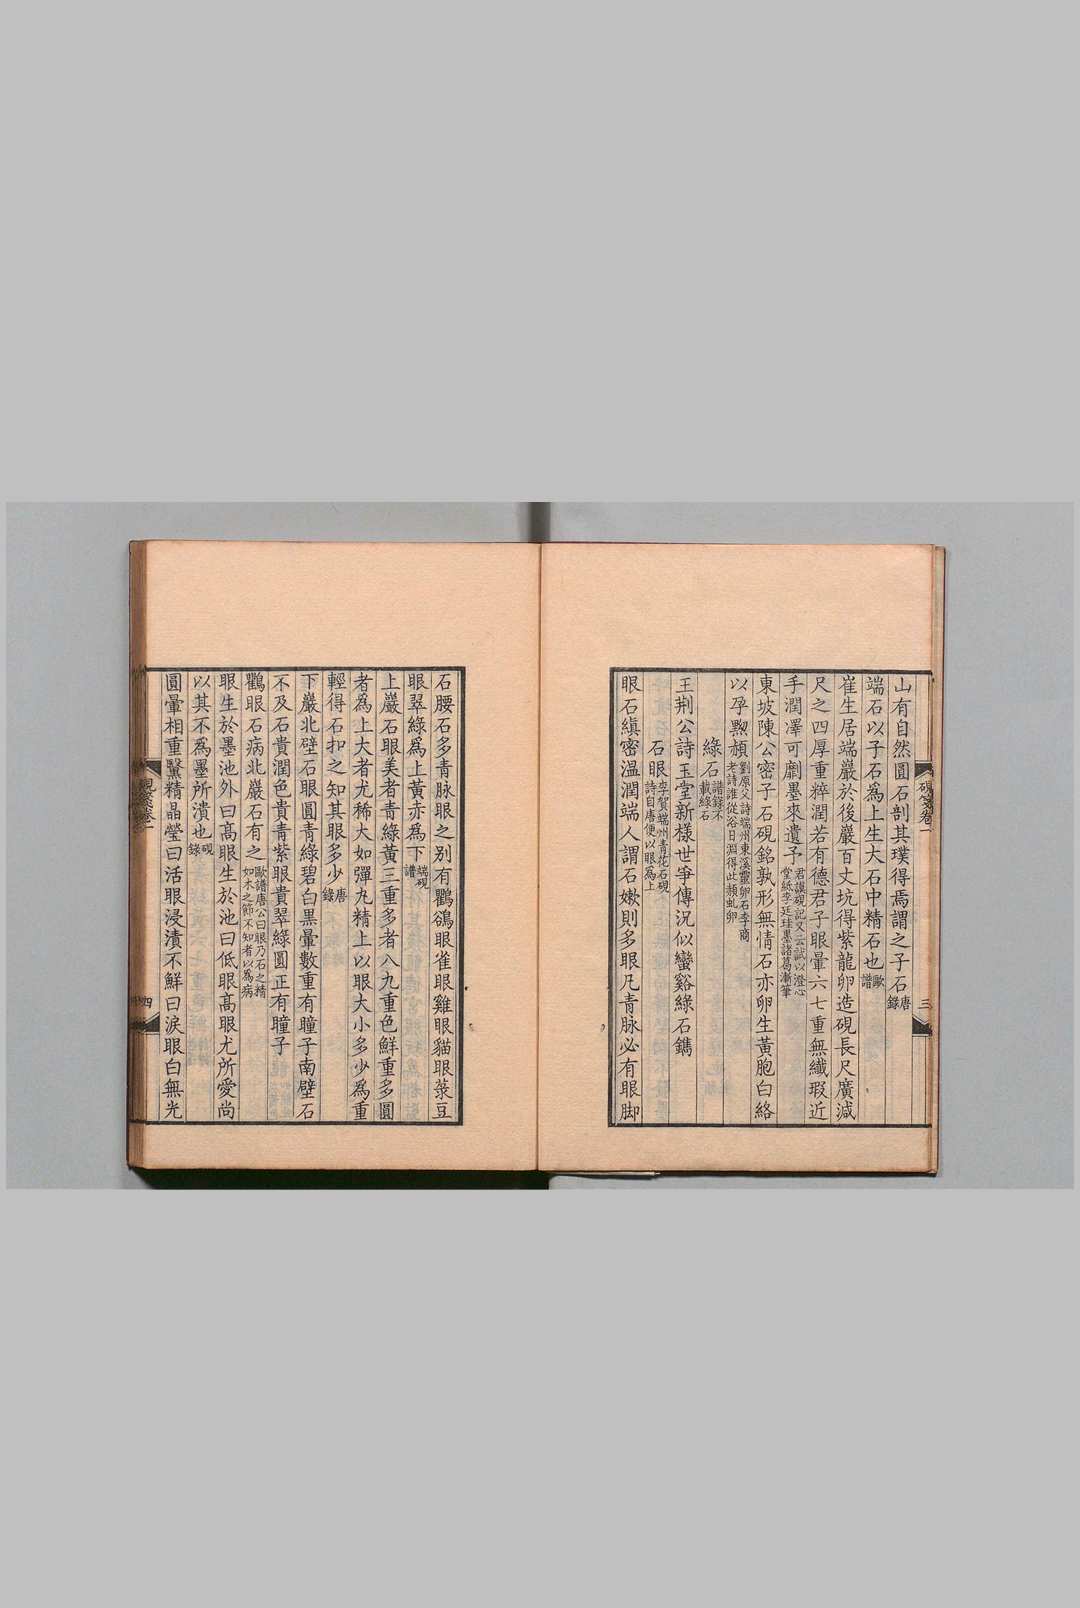 山有自然圓石剖其璞得焉謂之子石唐錄
端石以子石為上生大石中精石也歐譜
崔生居端巖於後巖百丈坑得紫龍卵造硯長尺廣減
尺之四厚重粹潤若有德君子眼暈六七重無纖瑕近
手潤澤可劘墨來遺予君謨硯記又云試以澄心堂紙李廷珪墨諸葛漸筆
東坡陳公密子石硯銘孰形無情石亦卵生黃胞白絡
以孕黝頳劉原父詩端州東溪靈卵石李商老詩誰從浴日淵得此頳虬卵
綠石譜錄不載綠石
王荆公詩玉堂新樣世爭傳況似蠻谿綠石鐫
石眼李賀端州青花石硯詩自唐便以眼為上
眼石縝密溫潤端人謂石嫰則多眼凡青脉必有眼脚
硯箋卷一
三
石腰石多青脉眼之别有鸜鵒眼雀眼雞眼貓眼菉豆
眼翠綠為上黃赤為下端硯譜
上巖石眼美者青綠黃三重多者八九重色鮮重多圓
者為上大者尤稀大如彈丸精上以眼大小多少為重
輕得石扣之知其眼多少唐錄
下巖北壁石眼圓青綠碧白黑暈數重有瞳子南壁石
不及石貴潤色貴青紫眼貴翠綠圓正有瞳子
鸜眼石病北巖石有之歐譜唐公曰眼乃石之精如木之節不知者以為病
眼生於墨池外曰高眼生於池曰低眼高眼尤所愛尚
以其不為墨所漬也硯錄
圓暈相重黳精晶瑩曰活眼浸漬不鮮曰淚眼白無光
硯箋卷一
四